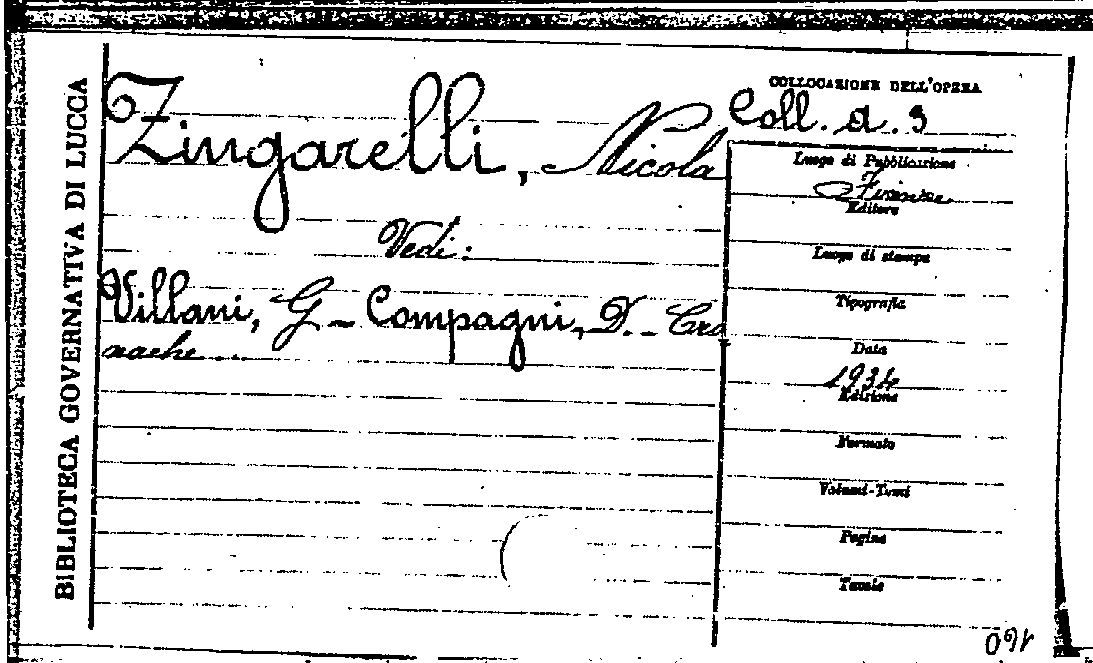 BIBLIOTECA GOVERNATIVA DI LUCCA
Zingarelli, Nicola
Vedi:
Villani, G. - Compagni, D. - Cro
nache...
COLLOCAZIONE DELL'OPERA
Coll. a. 3
Luogo di Pubblicazione
Firenze
Editore
Luogo di stampa
Tipografia
Data
1934
Edizione
Formato
Volumi-Tomi
Pagine
Tavole
160